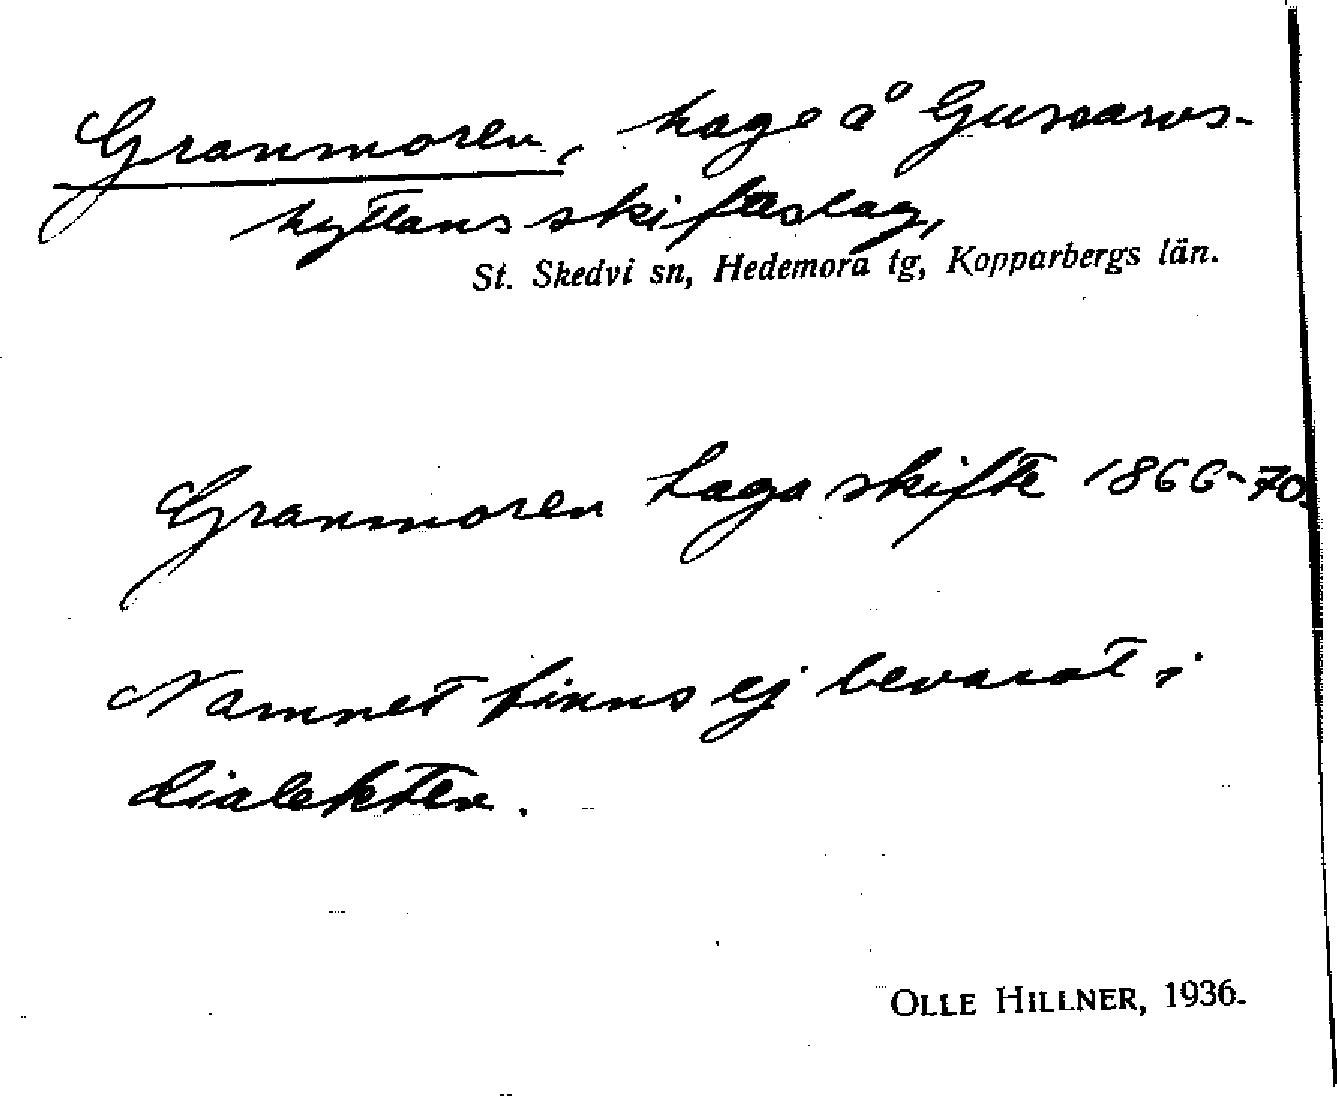 Granmoren, hage å Gussarvs-
hyttans skifteslag,
St. Skedvi sn, Hedemora tg, Kopparbergs län.
Granmoren Laga skifte 1866-70.
Namnet finns ej bevarat i
dialekten.
OLLE HILLNER, 1936.